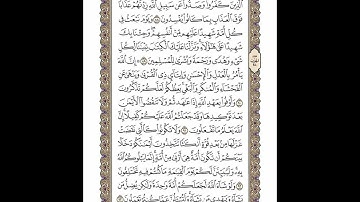 الَّذِينَ كَفَرُوا۟ وَصَدُّوا۟ عَن سَبِيلِ ٱللَّهِ زِدْنَٰهُمْ عَذَابًا
فَوْقَ ٱلْعَذَابِ بِمَا كَانُوا۟ يُفْسِدُونَ ۝ وَيَوْمَ نَبْعَثُ فِى
كُلِّ أُمَّةٍ شَهِيدًا عَلَيْهِم مِّنْ أَنفُسِهِمْ وَجِئْنَا بِكَ
شَهِيدًا عَلَىٰ هَٰٓؤُلَآءِ وَنَزَّلْنَا عَلَيْكَ ٱلْكِتَٰبَ تِبْيَٰنًا لِّكُلِّ
شَىْءٍ وَهُدًى وَرَحْمَةً وَبُشْرَىٰ لِلْمُسْلِمِينَ ۝ إِنَّ ٱللَّهَ
يَأْمُرُ بِٱلْعَدْلِ وَٱلْإِحْسَٰنِ وَإِيتَآئِ ذِى ٱلْقُرْبَىٰ وَيَنْهَىٰ عَنِ
ٱلْفَحْشَآءِ وَٱلْمُنكَرِ وَٱلْبَغْىِ يَعِظُكُمْ لَعَلَّكُمْ تَذَكَّرُونَ
۝ وَأَوْفُوا۟ بِعَهْدِ ٱللَّهِ إِذَا عَٰهَدتُّمْ وَلَا تَنقُضُوا۟ ٱلْأَيْمَٰنَ
بَعْدَ تَوْكِيدِهَا وَقَدْ جَعَلْتُمُ ٱللَّهَ عَلَيْكُمْ كَفِيلًا إِنَّ
ٱللَّهَ يَعْلَمُ مَا تَفْعَلُونَ ۝ وَلَا تَكُونُوا۟ كَٱلَّتِى نَقَضَتْ
غَزْلَهَا مِنۢ بَعْدِ قُوَّةٍ أَنكَٰثًا تَتَّخِذُونَ أَيْمَٰنَكُمْ دَخَلًۢا
بَيْنَكُمْ أَن تَكُونَ أُمَّةٌ هِىَ أَرْبَىٰ مِنْ أُمَّةٍ إِنَّمَا يَبْلُوكُمُ ٱللَّهُ
بِهِۦ وَلَيُبَيِّنَنَّ لَكُمْ يَوْمَ ٱلْقِيَٰمَةِ مَا كُنتُمْ فِيهِ تَخْتَلِفُونَ
۝ وَلَوْ شَآءَ ٱللَّهُ لَجَعَلَكُمْ أُمَّةً وَٰحِدَةً وَلَٰكِن يُضِلُّ مَن
يَشَآءُ وَيَهْدِى مَن يَشَآءُ وَلَتُسْـَٔلُنَّ عَمَّا كُنتُمْ تَعْمَلُونَ ۝